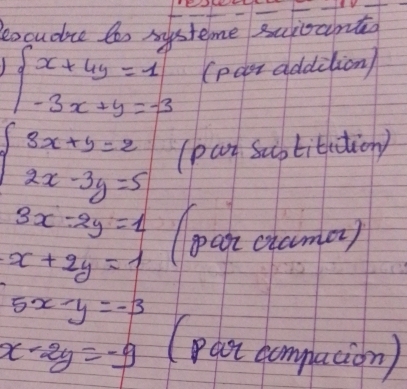 Resoudre les système suivantes
) { x + 4y = 1 (par addition)
-3x + y = -3
{ 3x + y = 2 (par substitution)
2x - 3y = 5
3x - 2y = 1 (par cramer)
-x + 2y = 1
5x - y = -3
x - 2y = -9 (par compacion)